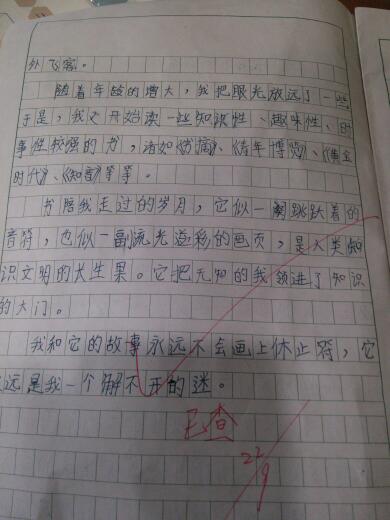 外飞客。
随着年龄的增大，我把眼光放远了一些
于是，我又开始读一些知识性、趣味性、时
事性较强的书，诸如《文摘》、《青年博览》、《黄金
时代》、《知音》等等。
书陪我走过的岁月，它似一跳跃着的
音符，也似一副流光溢彩的画页，是人类知
识文明的长生果。它把无知的我领进了知识
的大门。
我和它的故事永远不会画上休止符，它
永远是我一个解不开的迷。
已查
22/9